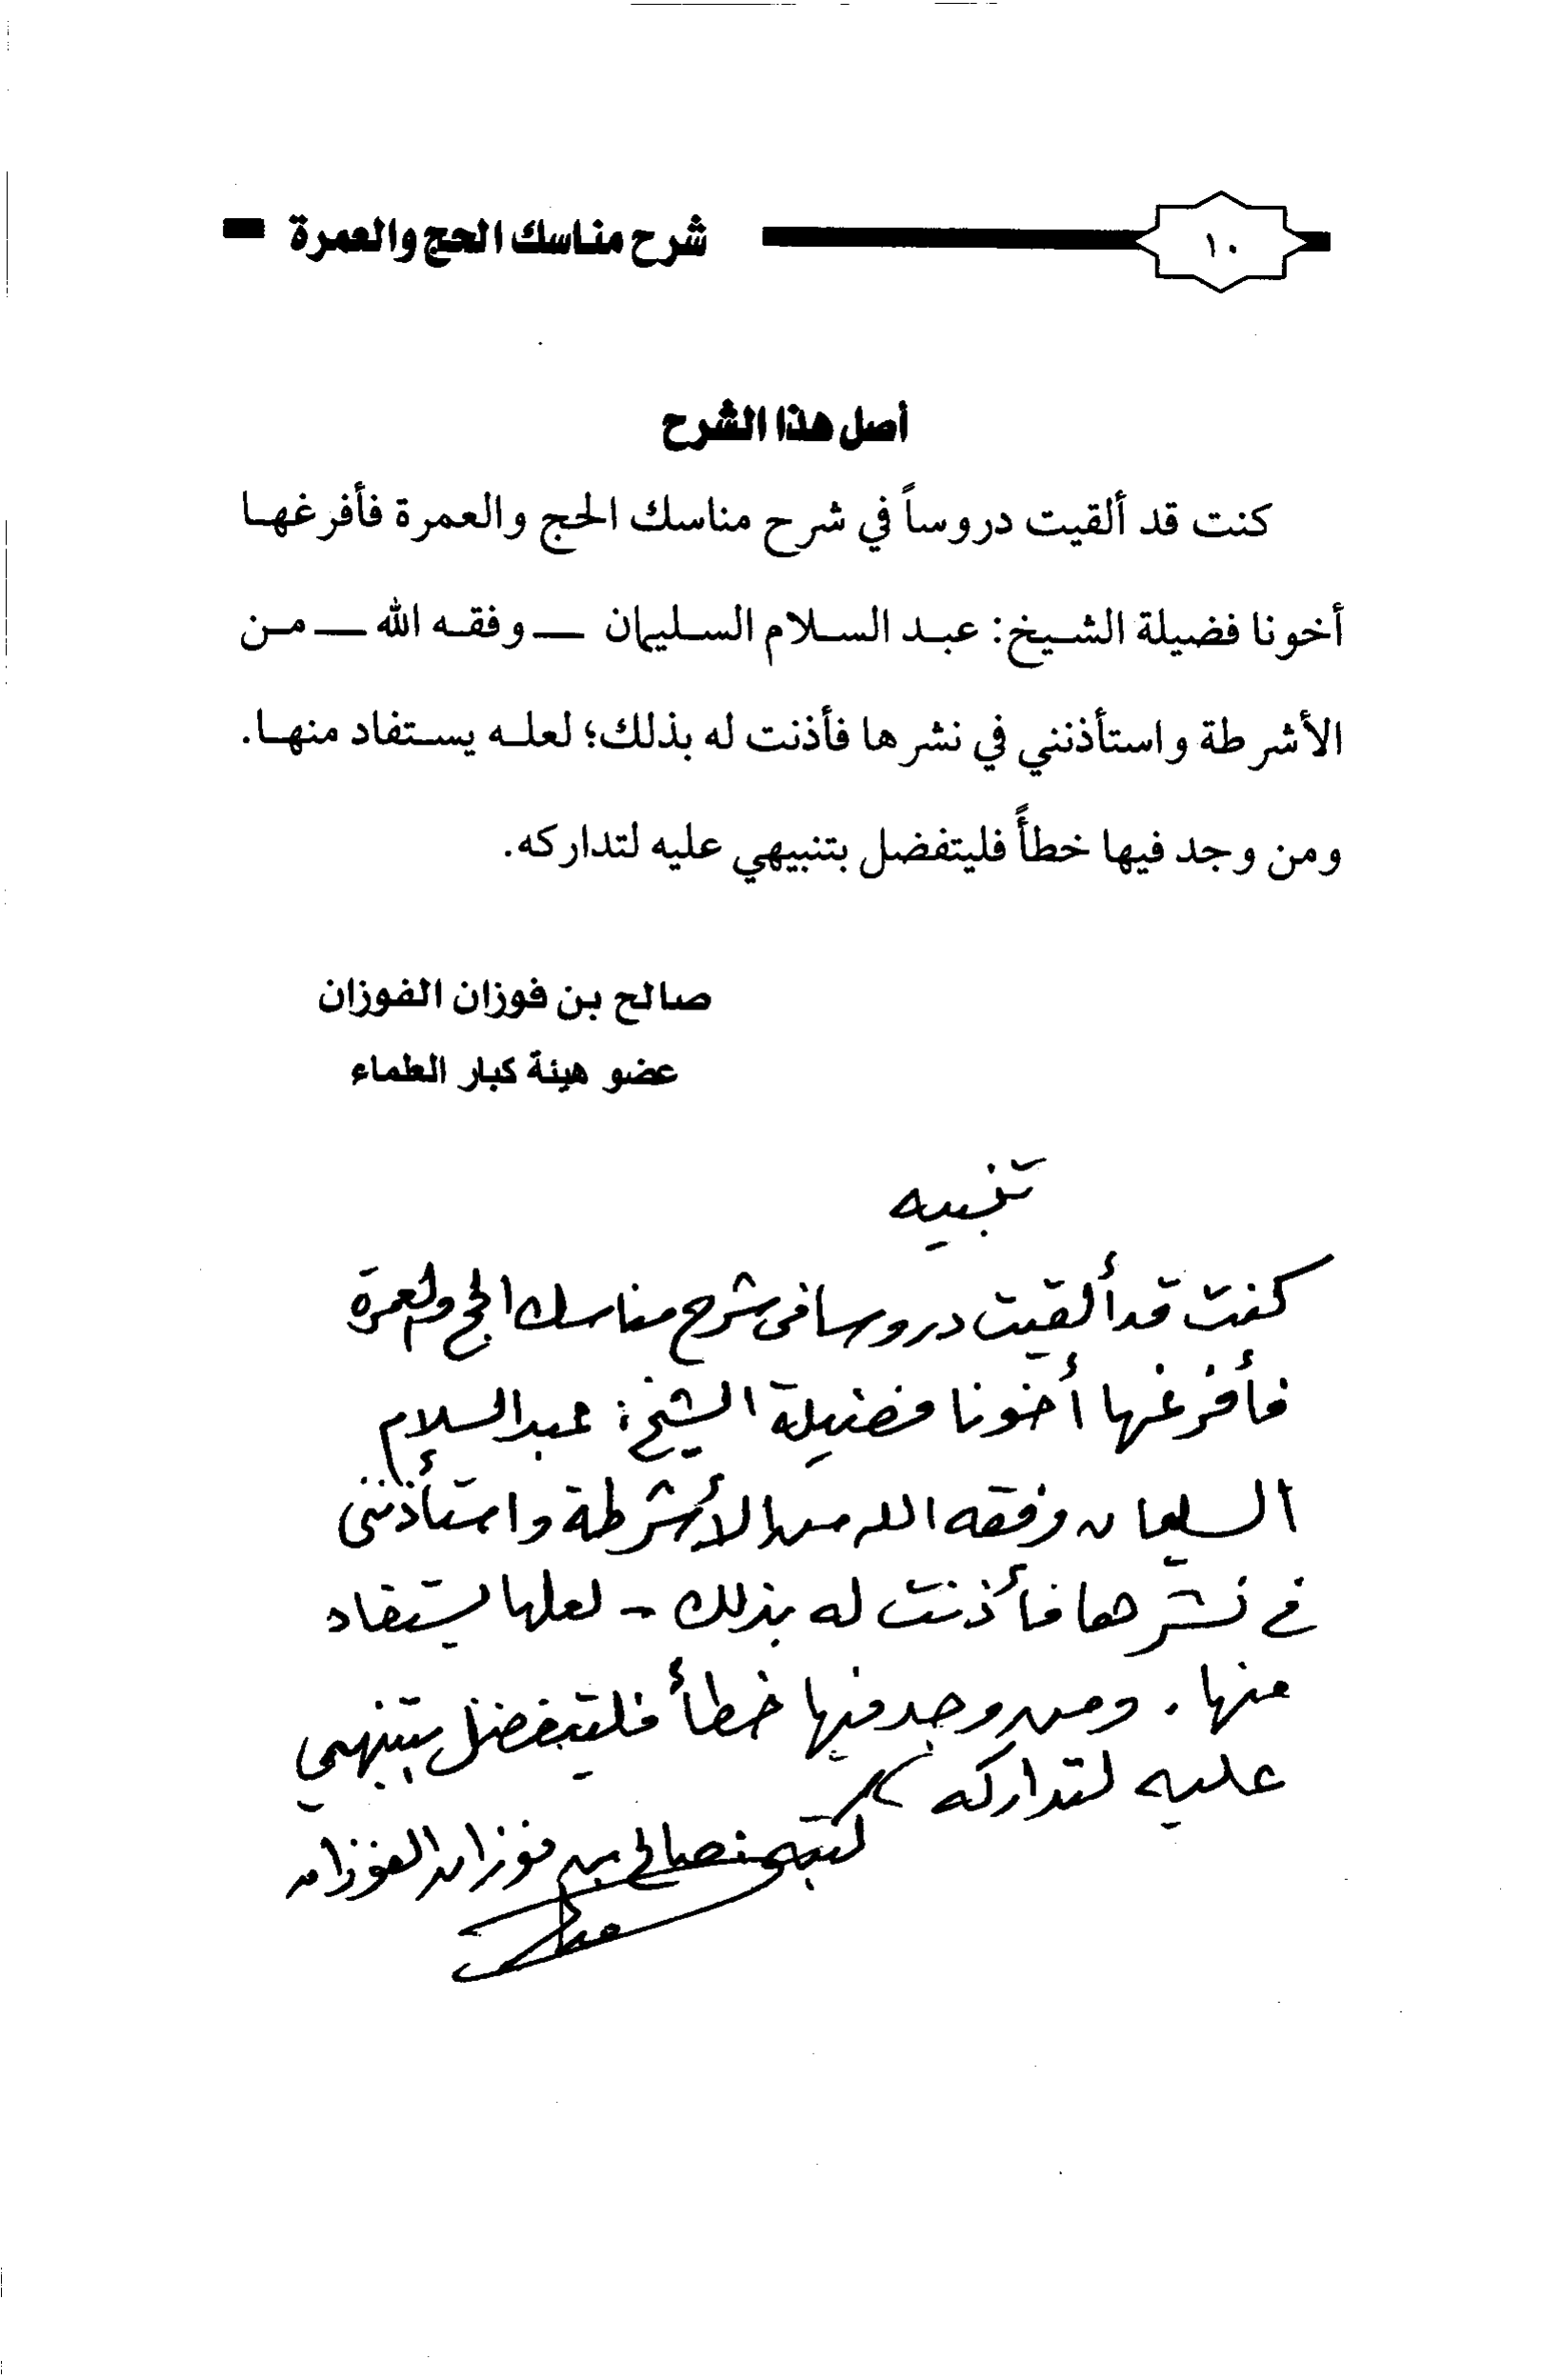 ١٠
شرح مناسك الحج والعمرة
أصل هذا الشرح
كنت قد ألقيت دروساً في شرح مناسك الحج والعمرة فأفرغها
أخونا فضيلة الشيخ: عبد السلام السليمان – وفقه الله – من
الأشرطة واستأذنني في نشرها فأذنت له بذلك؛ لعله يستفاد منها.
ومن وجد فيها خطأً فليتفضل بتنبيهي عليه لتداركه.
صالح بن فوزان الفوزان
عضو هيئة كبار العلماء
تنبيه
كنت قد ألقيت دروسا في شرح مناسك الحج والعمرة
فأفرغها أخونا فضيلة الشيخ: عبدالسلام
السليمان وفقه الله من الأشرطة واستأذنني
في نشرها فأذنت له بذلك - لعلها يستفاد
منها. ومن وجد فيها خطأ فليتفضل بتنبيهي
عليه لتداركه
كتبه: صالح بن فوزان الفوزان